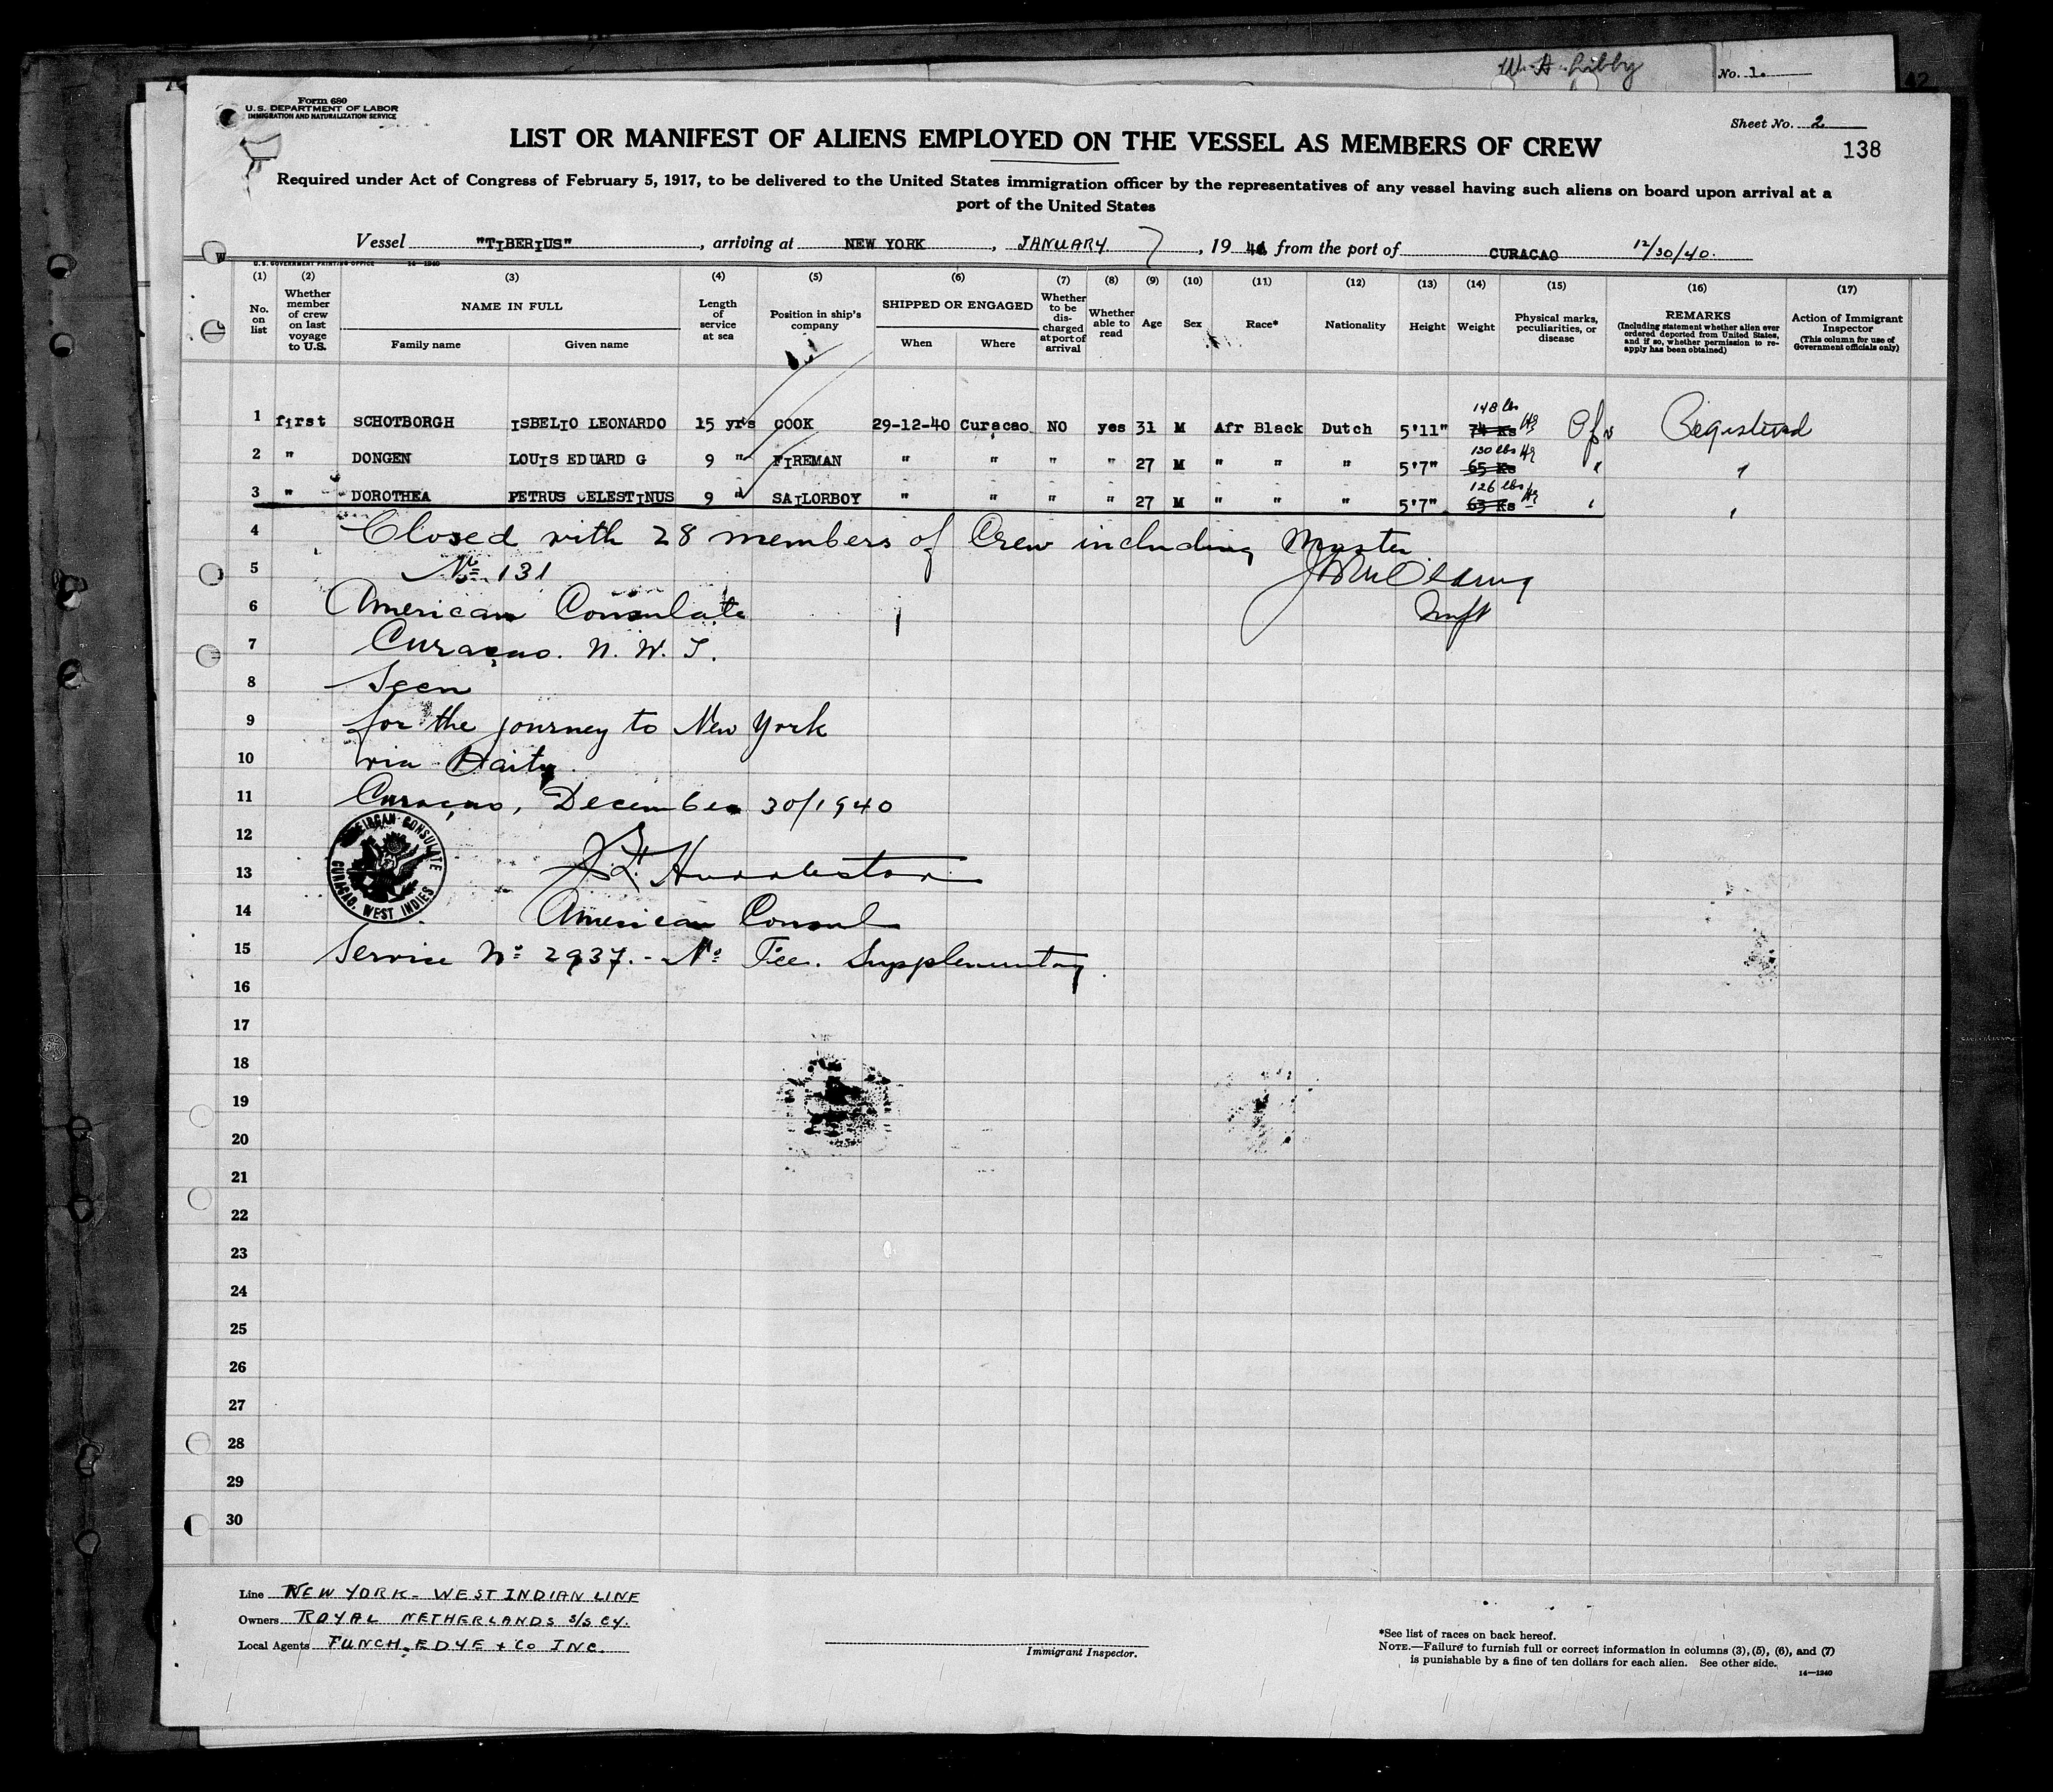 W. A. Libby
No. 1.
42
Form 680
U.S. DEPARTMENT OF LABOR
IMMIGRATION AND NATURALIZATION SERVICE
Sheet No. 2
138
LIST OR MANIFEST OF ALIENS EMPLOYED ON THE VESSEL AS MEMBERS OF CREW
Required under Act of Congress of February 5, 1917, to be delivered to the United States immigration officer by the representatives of any vessel having such aliens on board upon arrival at a
port of the United States
Vessel "TIBERIUS", arriving at NEW YORK, JANUARY 7, 1941 from the port of CURACAO 12/30/40.
U.S. GOVERNMENT PRINTING OFFICE 14-1240
(1) (2) (3) (4) (5) (6) (7) (8) (9) (10) (11) (12) (13) (14) (15) (16) (17)
No. on list
Whether member of crew on last voyage to U.S.
NAME IN FULL
Family name Given name
Length of service at sea
Position in ship's company
SHIPPED OR ENGAGED
When Where
Whether to be discharged at port of arrival
Whether able to read
Age
Sex
Race*
Nationality
Height
Weight
Physical marks, peculiarities, or disease
REMARKS
(Including statement whether alien ever ordered deported from United States, and if so, whether permission to re-apply has been obtained)
Action of Immigrant Inspector
(This column for use of Government officials only)
148 lbs
1 first SCHOTBORGH ISBELIO LEONARDO 15 yrs COOK 29-12-40 Curacao NO yes 31 M Afr Black Dutch 5'11" 74 Ks Registered
130 lbs
2 " DONGEN LOUIS EDUARD G 9 " FIREMAN " " " " 27 M " " " 5'7" 65 Ks "
126 lbs
3 " DOROTHEA PETRUS CELESTINUS 9 " SAILORBOY " " " " 27 M " " " 5'7" 63 Ks "
4 Closed with 28 members of Crew including Master.
5 No 131
6 American Consulate
7 Curaçao. N. W. I.
8 Seen
9 for the journey to New York
10 via Haity.
11 Curaçao, December 30/1940
12
AMERICAN CONSULATE
CURACAO, WEST INDIES
13
14 American Consul
15 Service No 2937.- No Fee. Supplementary.
16
17
18
19
20
21
22
23
24
25
26
27
28
29
30
Line NEW YORK - WEST INDIAN LINE
Owners ROYAL NETHERLANDS S/S CY.
Local Agents FUNCH. EDYE & Co INC.
Immigrant Inspector.
*See list of races on back hereof.
NOTE.—Failure to furnish full or correct information in columns (3), (5), (6), and (7)
is punishable by a fine of ten dollars for each alien. See other side.
14-1240